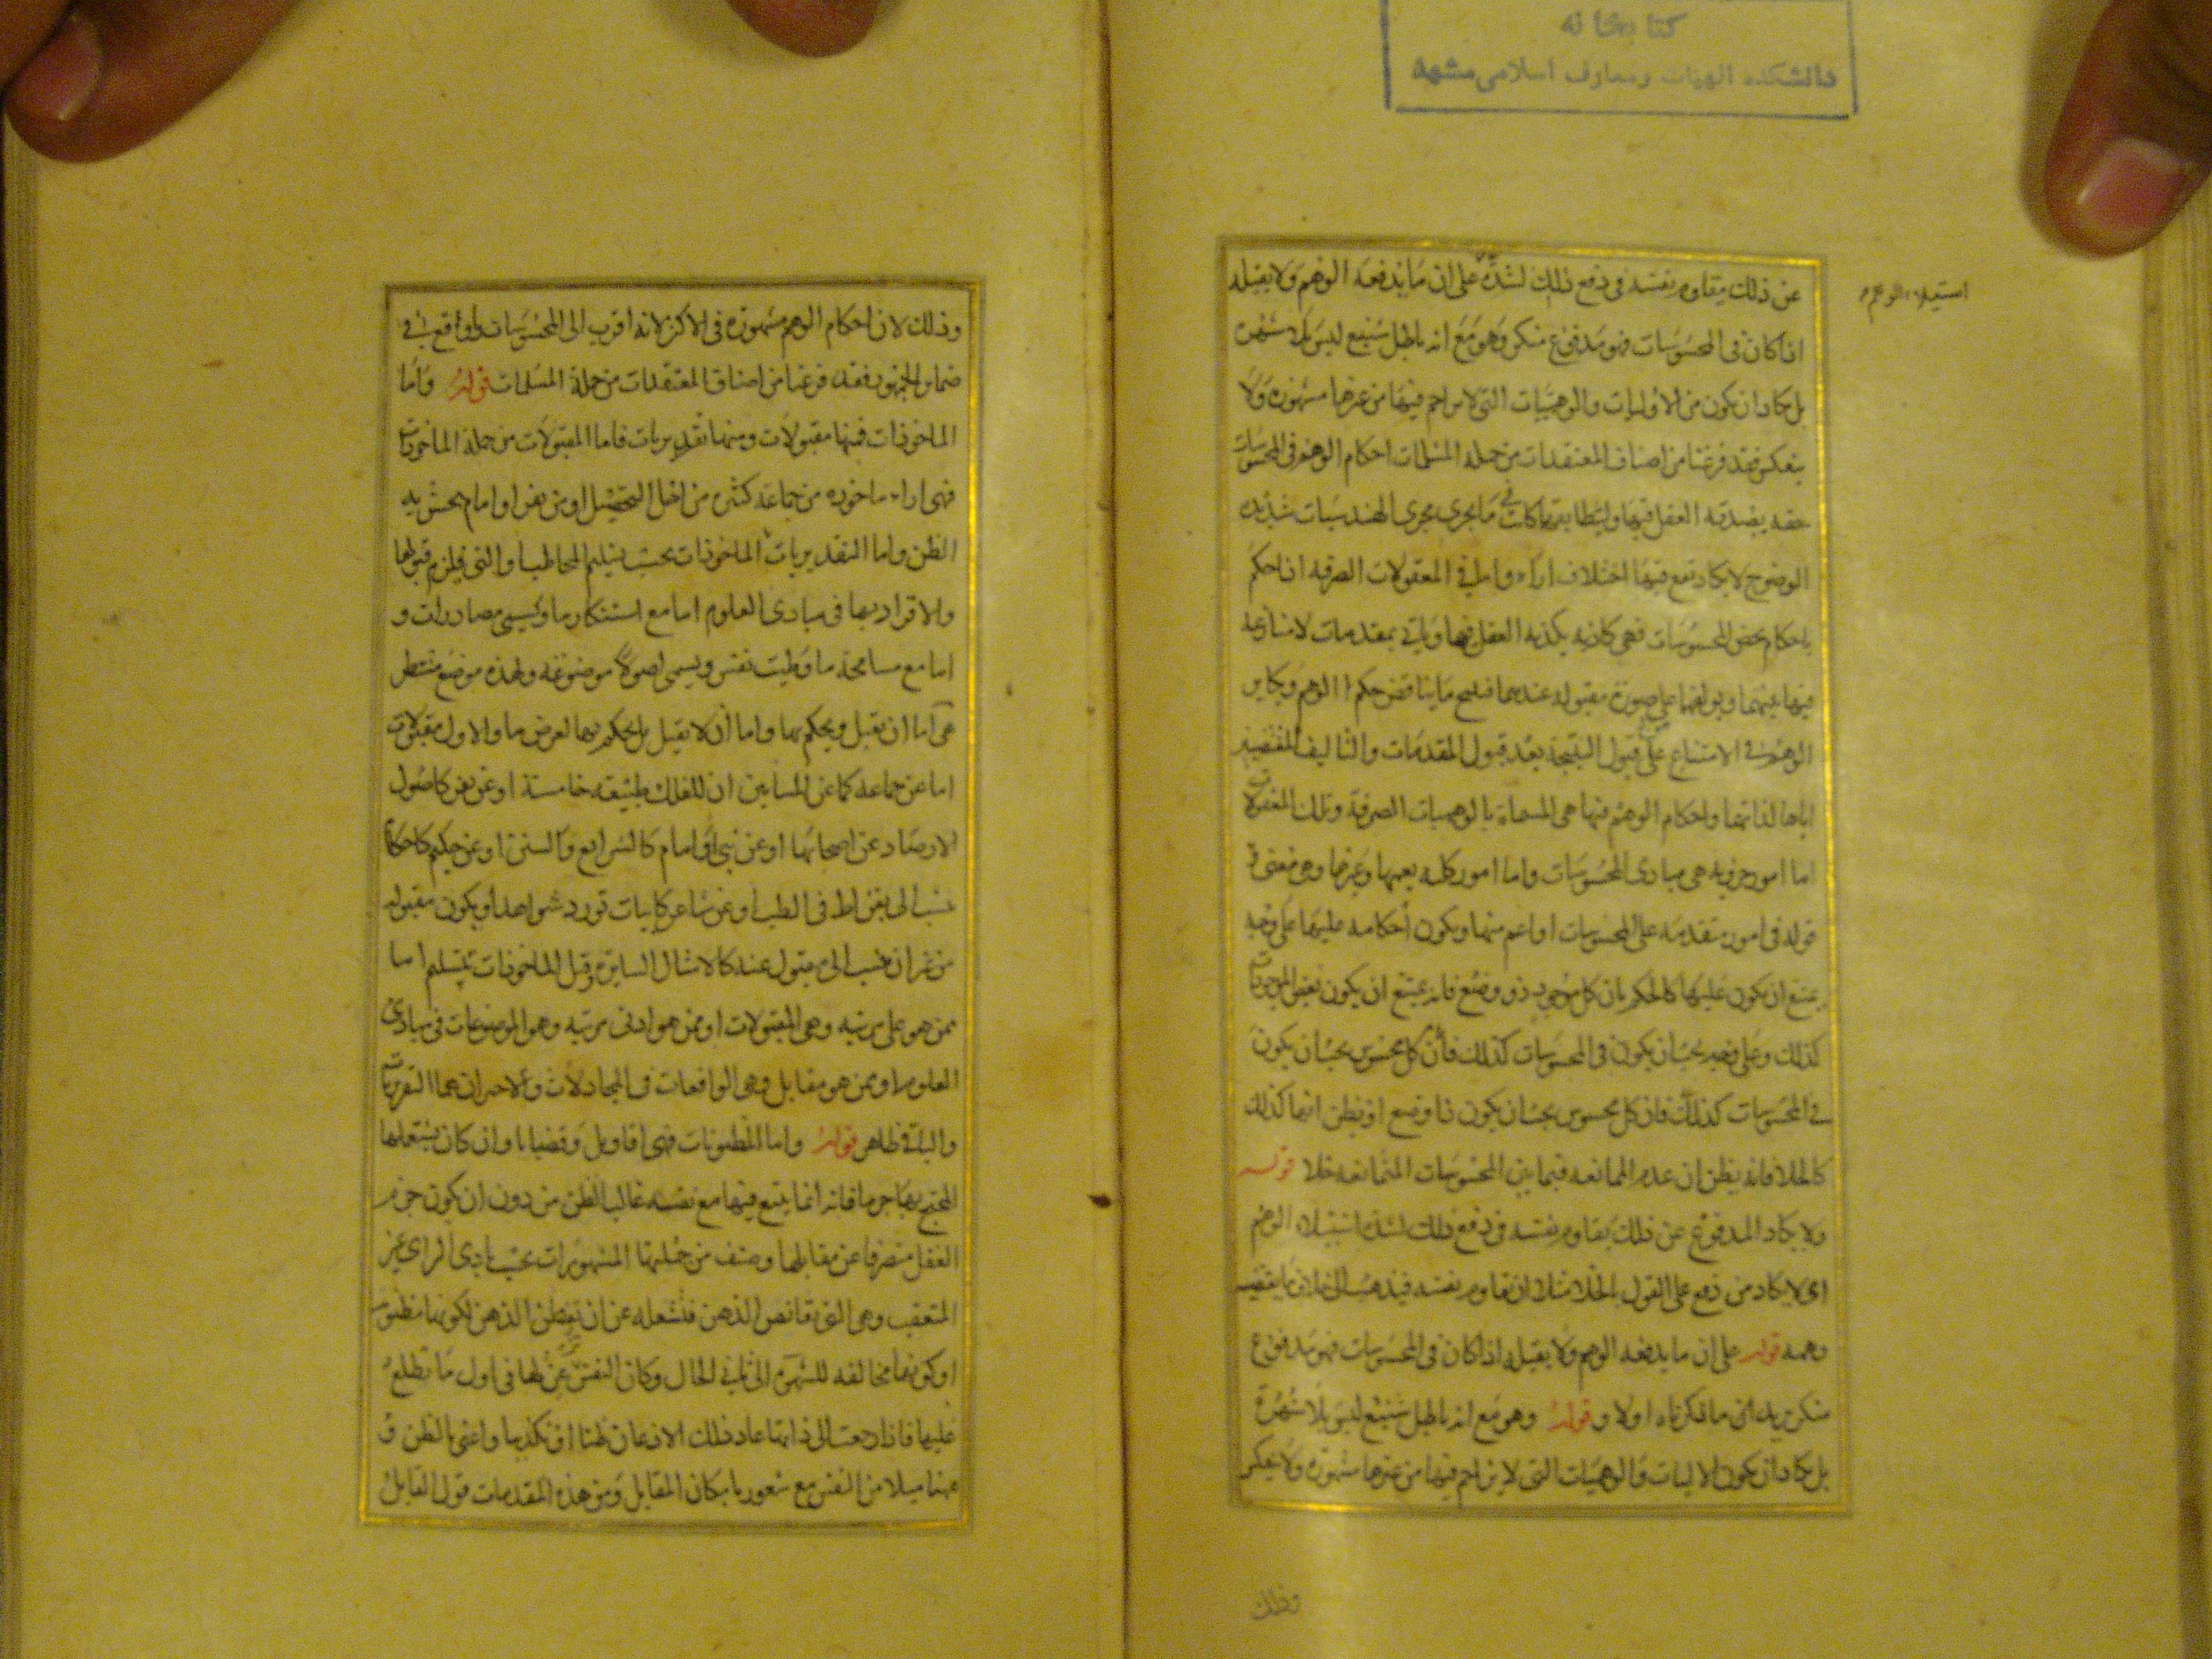 كتابخانه
دانشكده الهیات ومعارف اسلامی مشهد
استیلاء الوهم
عن ذلك یقاوم نفسه فی دفع ذلك لشدة علی ان ما یدفعه الوهم ولا یقبله
اذا كان فی المحسوسات فهو مدفوع منكر وهو مع انه باطل شنیع لیس بلا شهرة
بل یكاد ان یكون من الاولیات والوهمیات التی لا یزاحم فیها من غیرها مشهورة ولا
ینعكس فقد فرغنا من اصناف المعتقدات من جملة المسلمات احكام الوهم فی المحسوسات
حقه یصدقه العقل فیها ولتطابقهما كانت ما یجری مجری الهندسیات شدیده
الوضوح لا یكاد تقع فیها اختلاف اراء واما فی المعقولات الصرفه اذا حكم
باحكام یخص المحسوسات فهی كاذبه یكذبه العقل فیها ویاتی بمقدمات لا منازعه
فیها بینهما ویولفهما علی صورة مقبوله عندهما فینتج ما یناقض حكم الوهم ویكابر
الوهم فی الامتناع علی قبول النتیجة بعد قبول المقدمات والتالیف المقتضیة
ایاها لذاتها واحكام الوهم فیها هی المسماة بالوهمیات الصرفة وتلك المعقولات
اما امور جزویه هی مبادی المحسوسات واما امور كلیه یعمها وغیرها وهو معنی
قوله فی امور متقدمة علی المحسوسات او اعم منها ویكون احكامه علیها علی وجه
یمتنع ان یكون علیها كالحكم بان كل موجود ذو وضع فانه یمتنع ان یكون بعض الموجودات
كذلك وعلی وجه یجب ان یكون فی المحسوسات كذلك فان كل محسوس یجب ان یكون
فی المحسوسات كذلك فان كل محسوس یجب ان یكون ذا وضع او یظن انها كذلك
كالخلا فانه یظن ان عدم الممانعه فیما بین المحسوسات المتمانعه خلا قوله
ولا یكاد المدفوع عن ذلك یقاوم نفسه فی دفع ذلك لشدة استیلاء الوهم
ای لا یكاد من دفع علی القول بالخلا مثلا ان یقاوم نفسه فیذهب الی خلاف ما یقتضیه
وهمه قوله علی ان ما یدفعه الوهم ولا یقبله اذا كان فی المحسوسات فهو مدفوع
منكر یرید به ما ذكرناه اولا و قوله وهو مع انه باطل شنیع لیس بلا شهرة
بل یكاد ان یكون الاولیات والوهمیات التی لا یزاحم فیها من غیرها مشهورة ولا ینعكس
وذلك
وذلك لان احكام الوهم مشهورة فی الاكثر لانه اقرب الی المحسوسات واوقع فی
ضمایر الجمهور فقد فرغنا من اصناف المعتقدات من جملة المسلمات قوله واما
الماخوذات فمنها مقبولات ومنها تقدیریات فاما المقبولات من جملة الماخوذات
فهی اراء ماخوذه من جماعة كثیره من اهل التحصیل او من نفر او امام یحسن به
الظن واما التقدیریات الماخوذات بحسب تسلیم المخاطب او التی یلزم قبولها
والاقرار بها فی مبادی العلوم اما مع استنكار ما ویسمی مصادرات و
اما مع مسامحة ما وطیب نفس ویسمی اصولا موضوعة ولهذه موضع منتظر
هی اما ان یقبل ویحكم بها واما ان لا یقبل بل یحكم بها لغرض ما والاول مقبولات
اما عن جماعة كما عن المشایین ان للفلك طبیعة خامسة او عن نفر كاصول
الارصاد عن اصحابها او عن نبی او امام كالشرایع والسنن او عن حكیم كاحكام
ینسب الی بقراط فی الطب او عن شاعر كابیات تورد شواهد او یكون مقبوله
من غیر ان ینسب الی مقبول عنه كالامثال السایره وقیل الماخوذات یتسلم اما
ممن هو اعلی مرتبه وهی المقبولات او ممن هو ادنی مرتبه وهو الموضوعات فی مبادی
العلوم او ممن هو مقابل وهی الواقعات فی المجادلات والاخیران هما التقدیریات
والباقی ظاهر قوله واما المظنونات فهی اقاویل وقضایا وان كان یستعملها
المحتج بها جزما فانه انما یتبع فیها مع نفسه غالب الظن من دون ان یكون جزم
العقل منصرفا عن مقابلها وصنف من جملتها المشهورات بحسب بادی الرای غیر
المتعقب وهی التی تغافص الذهن فتشغله عن ان یفطن الذهن لكونها مظنونه
او كونها مخالفه للشهرة الی ثانی الحال وكان النفس یذعن لها فی اول ما تطلع
علیها فاذا رجعت الی ذاتها عاد ذلك الاذعان ظنا او تكذیبا واعنی بالظن
ههنا میلا من النفس مع شعور بامكان المقابل ومن هذه المقدمات قول القایل